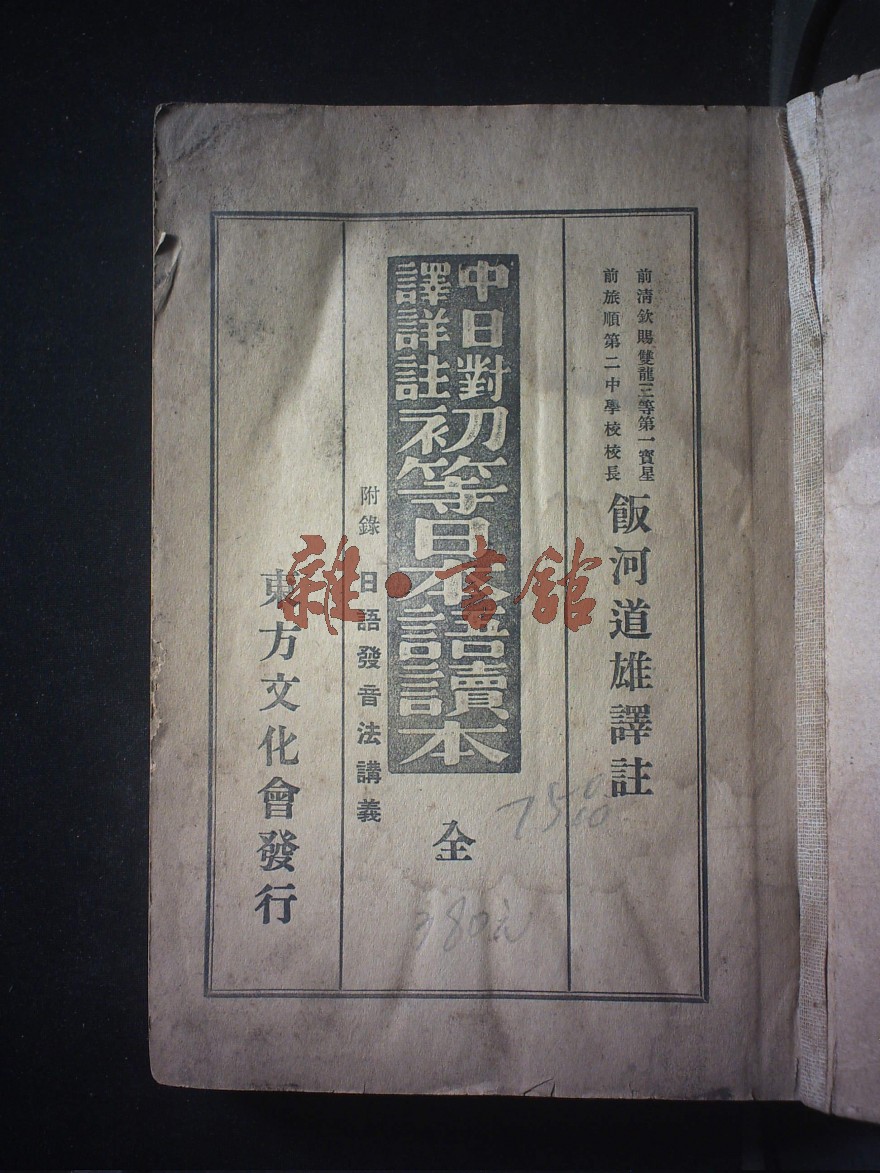 前清欽賜雙龍三等第一寶星
前旅順第二中學校校長
飯河道雄譯註
中日對譯詳註
初等日本語讀本
全
附錄 日語發音法講義
東方文化會發行
雜·書館
380元